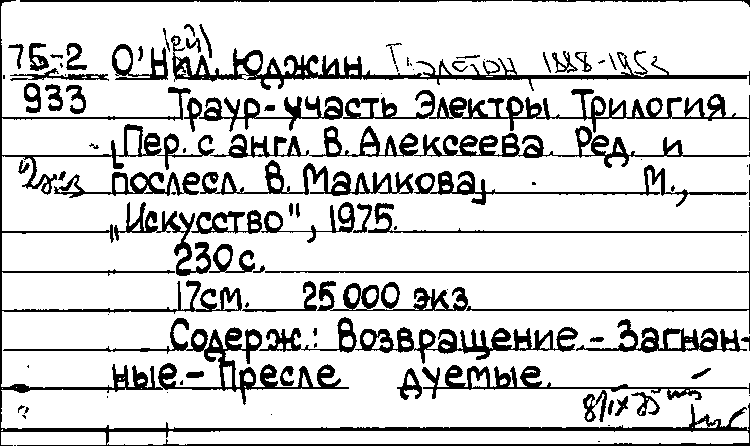 75-2 О'Нил, Юджин. Гладстон, 1888-1953
(ей)
933 Траур-участь Электры. Трилогия.
Пер. с англ. В. Алексеева. Ред. и
2 экз послесл. В. Маликова. М.,
„Искусство", 1975.
230 с.
17см. 25 000 экз.
Содерж.: Возвращение. - Загнан-
ные. - Пресле дуемые.